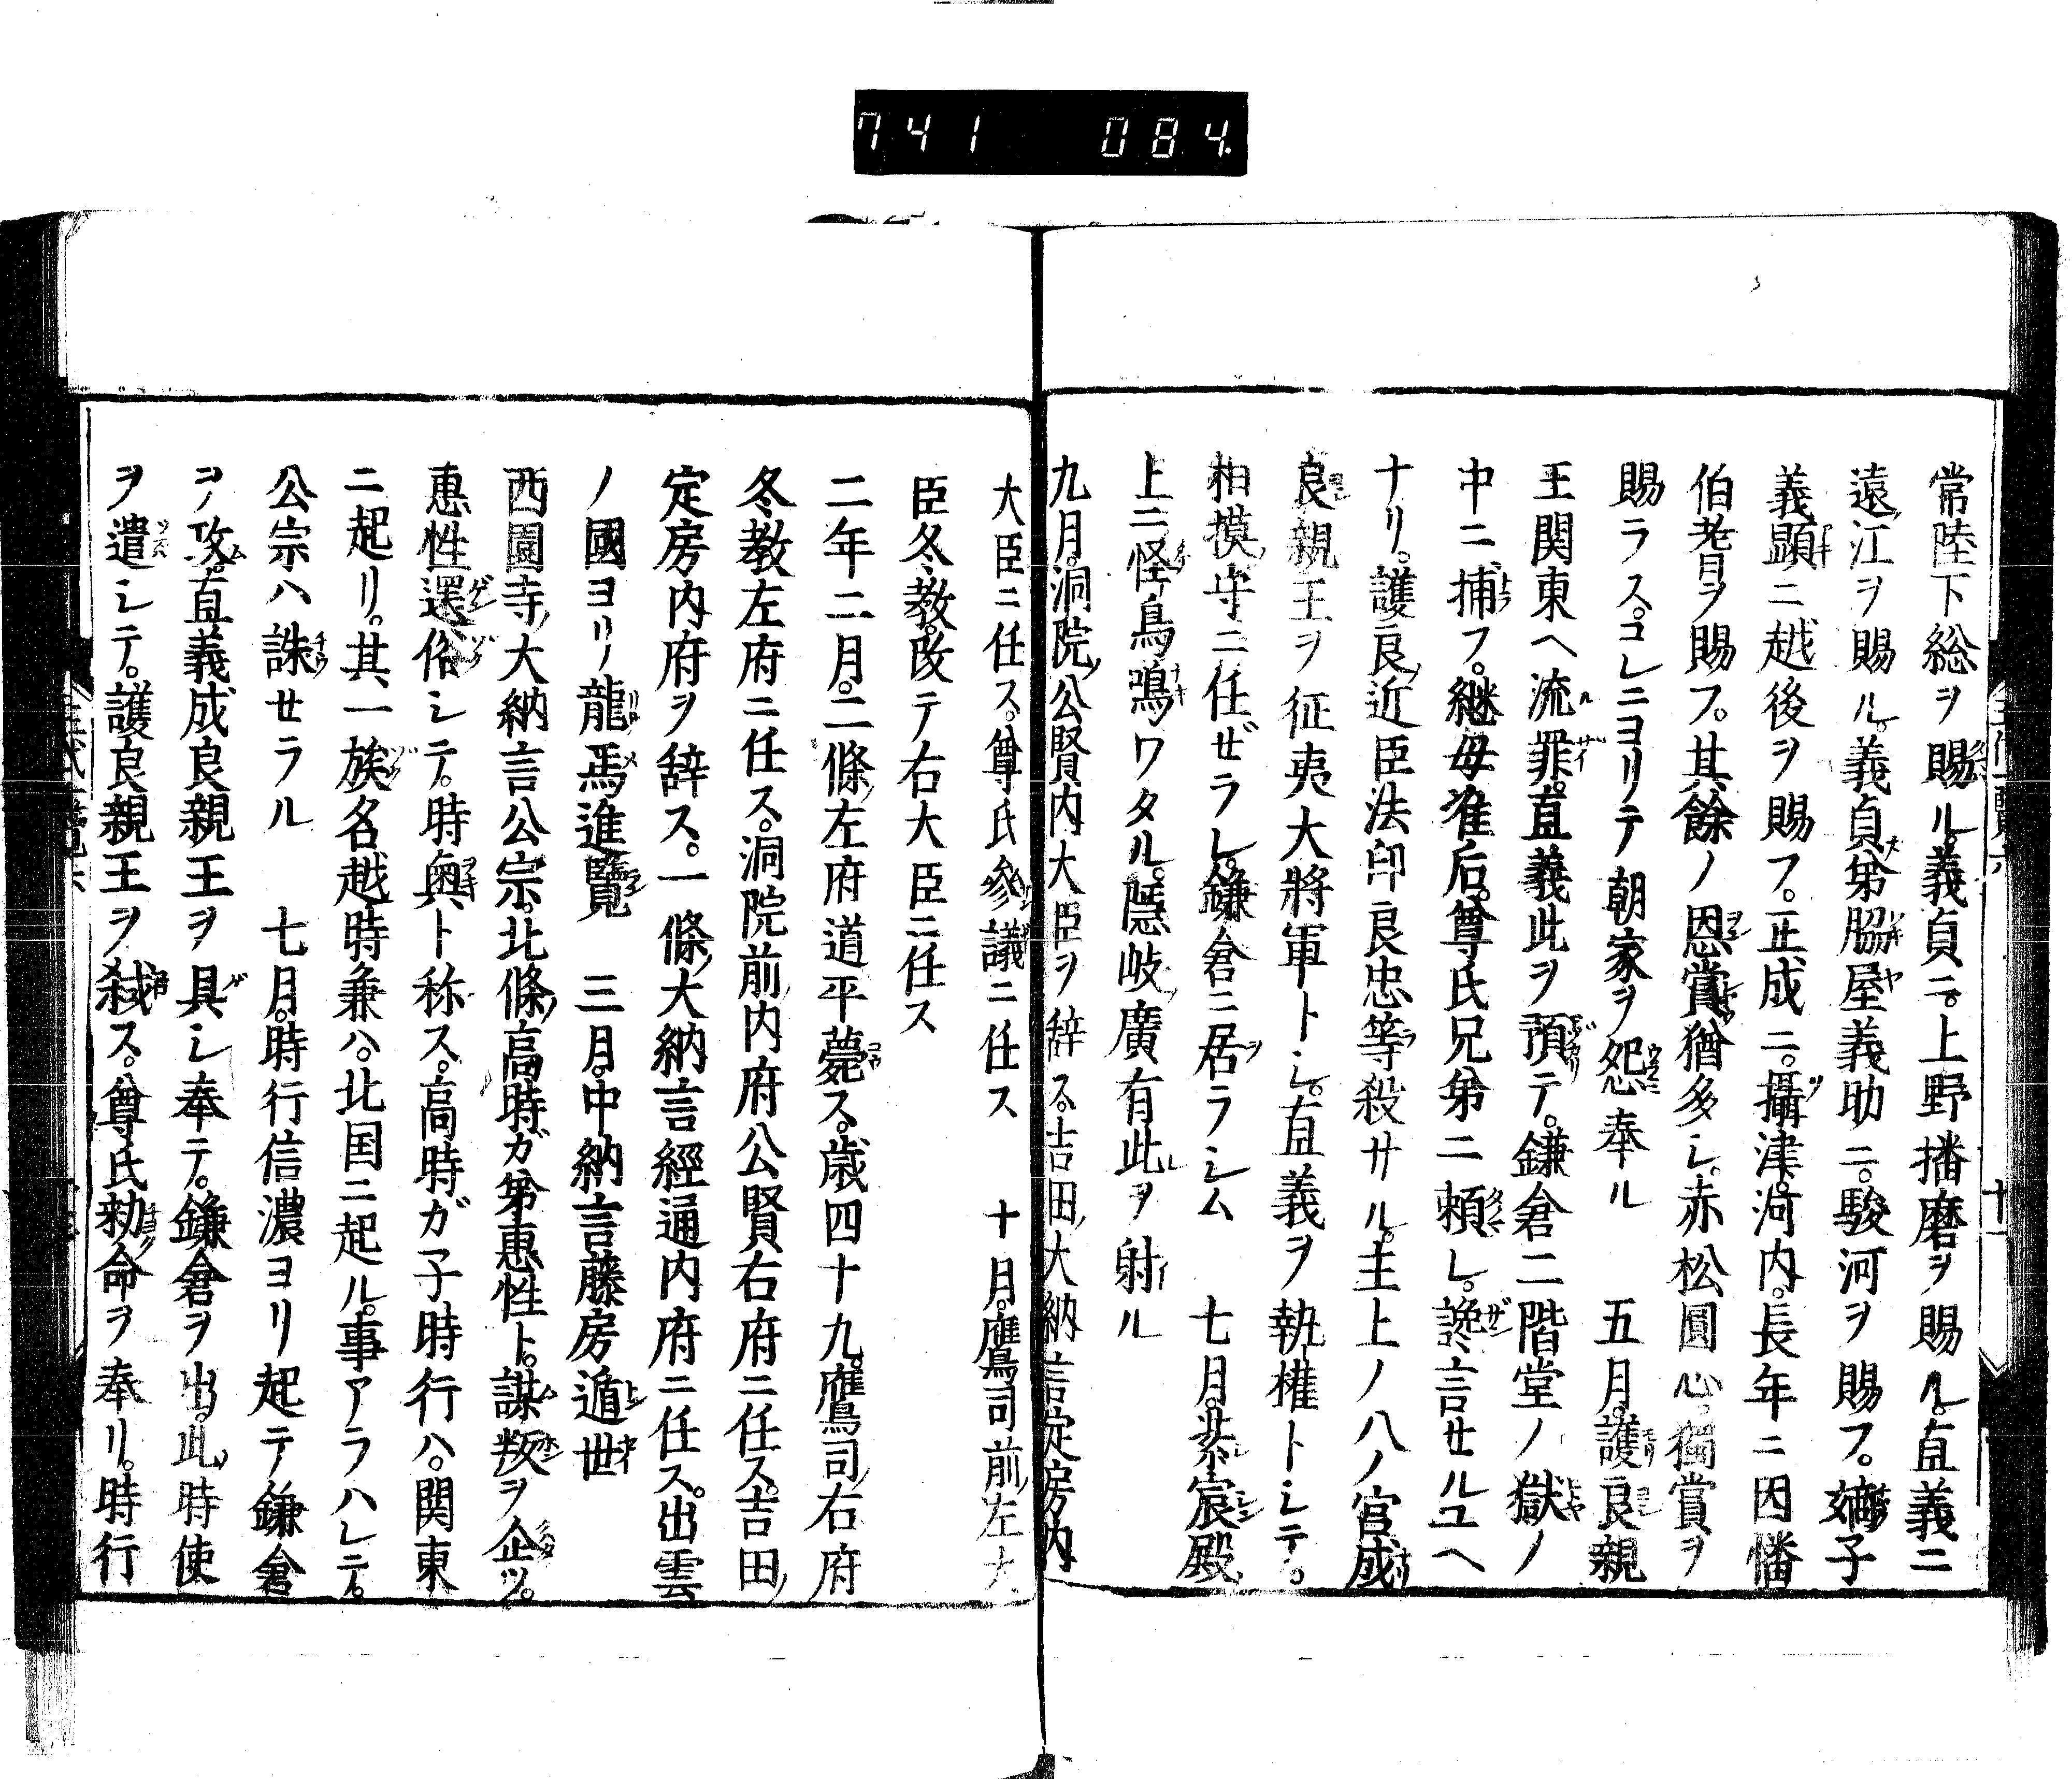 741 084
常陸下総ヲ賜ル。義貞ニ。上野播磨ヲ賜ル。直義ニ
遠江ヲ賜ル。義貞弟脇屋義助ニ。駿河ヲ賜フ。嫡子
義顕ニ越後ヲ賜フ。正成ニ。攝津。河内。長年ニ因幡
伯耆ヲ賜フ。其餘ノ恩賞猶多シ。赤松圓心。獨賞ヲ
賜ラス。コレニヨリテ朝家ヲ怨奉ル　五月。護良親
王関東ヘ流罪。直義此ヲ預テ。鎌倉二階堂ノ獄ノ
中ニ捕フ。継母准后。尊氏兄弟ニ頼レ。讒言セルユヘ
ナリ。護良近臣法印良忠等殺サル。主上ノ八ノ宮成
良親王ヲ征夷大將軍トシ。直義ヲ執権トシテ。
相摸守ニ任ゼラレ。鎌倉ニ居ラシム　七月。紫宸殿
上ニ怪鳥鳴ワタル。隠岐廣有此ヲ射ル
九月。洞院公賢内大臣ヲ辞ス。吉田大納言定房内
大臣ニ任ス。尊氏参議ニ任ス　十月。鷹司前左大
臣冬教。改テ右大臣ニ任ス
二年二月。二條左府道平薨ス。歳四十九。鷹司右府
冬教左府ニ任ス。洞院前内府公賢右府ニ任ス。吉田
定房内府ヲ辞ス。一條大納言經通内府ニ任ス。出雲
ノ國ヨリ龍馬進覽　三月。中納言藤房遁世
西園寺大納言公宗。北條高時ガ弟惠性ト。謀叛ヲ企ツ。
惠性還俗シテ。時興ト称ス。高時ガ子時行ハ。関東
ニ起リ。其一族名越時兼ハ。北国ニ起ル。事アラハレテ。
公宗ハ誅セラル　七月。時行信濃ヨリ起テ鎌倉
ヲ攻。直義成良親王ヲ具シ奉テ。鎌倉ヲ出。此時使
ヲ遣シテ。護良親王ヲ弑ス。尊氏勅命ヲ奉リ。時行